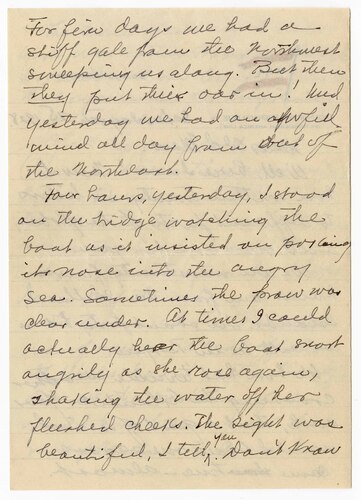 For five days we had a
stiff gale from the Northwest
sweeping us along. But then
they put their oar in! And
yesterday we had an awful
wind all day from out of
the Northeast.
Four hours, yesterday, I stood
on the bridge watching the
boat as it insisted on poking
its nose into the angry
sea. Sometimes the prow was
clear under. At times I could
actually hear the boat snort
angrily as she rose again,
shaking the water off her
flushed cheeks. The sight was
beautiful, I tell you. Don't know